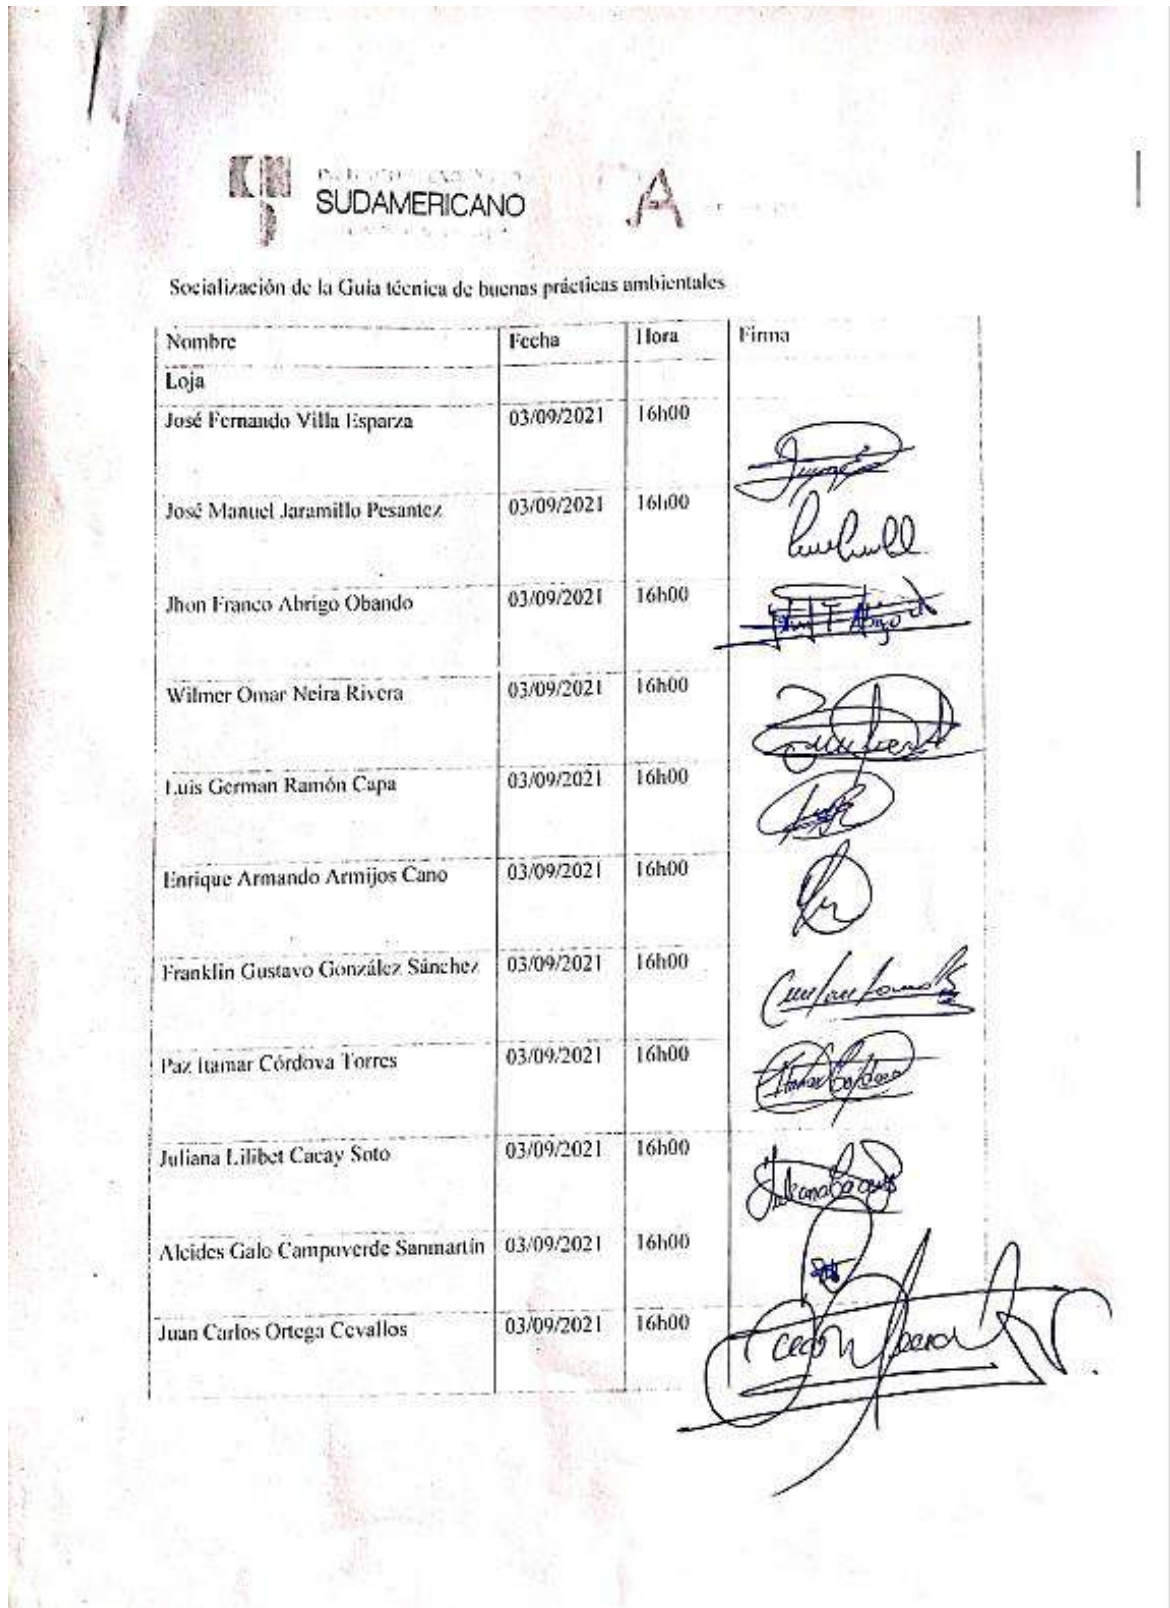 SUDAMERICANO
A
Socialización de la Guía técnica de buenas prácticas ambientales
Nombre Fecha Hora Firma
Loja
José Fernando Villa Esparza 03/09/2021 16h00
José Manuel Jaramillo Pesantez 03/09/2021 16h00
Jhon Franco Abrigo Obando 03/09/2021 16h00
Wilmer Omar Neira Rivera 03/09/2021 16h00
Luis German Ramón Capa 03/09/2021 16h00
Enrique Armando Armijos Cano 03/09/2021 16h00
Franklin Gustavo González Sánchez 03/09/2021 16h00
Paz Itamar Córdova Torres 03/09/2021 16h00
Juliana Lilibet Cacay Soto 03/09/2021 16h00
Alcides Galo Campoverde Sanmartín 03/09/2021 16h00
Juan Carlos Ortega Cevallos 03/09/2021 16h00